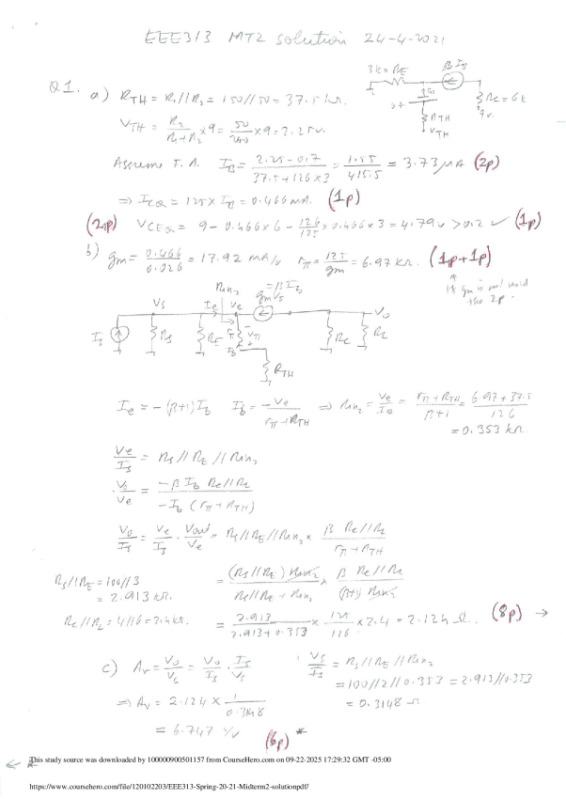 EEE313 MT2 solution 24-4-2021
3k = RE
βIb
Rc = 6k
9v.
RTH
VTH
Q1. a) RTH = R1//R2 = 150//50 = 37.5 kΩ.
VTH = R2/(R1+R2) × 9 = 50/200 × 9 = 2.25v.
Assume F.A. IB = (2.25-0.7)/(37.5+126×3) = 1.55/415.5 = 3.73 μA (2p)
⇒ ICQ = 125 × IB = 0.466 mA. (1p)
(2p) VCEQ = 9 - 0.466×6 - 126/125 × 0.466×3 = 4.79v > 0.2 ✓ (1p)
b) gm = 0.466/0.026 = 17.92 mA/v rπ = 125/gm = 6.97 kΩ. (1p+1p)
If gm is not used
the 2p.
Vs Ie Rin2 Ve gmVπ = βIb Vo
Is RS RE rπ Vπ Ib RC RL
RTH
Ie = -(β+1)Ib Ib = -Ve/(rπ+RTH) ⇒ Rin2 = Ve/Ie = (rπ+RTH)/(β+1) = (6.97+37.5)/126
= 0.353 kΩ
Ve/Is = RS//RE//Rin2
Vo/Ve = -β Ib RC//RL / -Ib (rπ+RTH)
Vo/Is = Ve/Is · Vout/Ve = RS//RE//Rin2 × β RC//RL / (rπ+RTH)
RS//RE = 100//3
= 2.913 kΩ.
= (RS//RE) Rin2 / (RS//RE + Rin2) × β RC//RL / (β+1) Rin2
RC//RL = 4//6 = 2.4 kΩ.
= 2.913/(2.913+0.353) × 125/126 × 2.4 = 2.124 Ω. (8p) →
c) Av = Vo/Vs = Vo/Is · Is/Vs
Vs/Is = RS//RE//Rin2
= 100//2//0.353 = 2.913//0.353
= 0.3148 Ω
⇒ Av = 2.124 × 1/0.3148
= 6.747 V/V (6p) *
This study source was downloaded by 100000900501157 from CourseHero.com on 09-22-2025 17:29:32 GMT -05:00
https://www.coursehero.com/file/120102203/EEE313-Spring-20-21-Midterm2-solutionpdf/